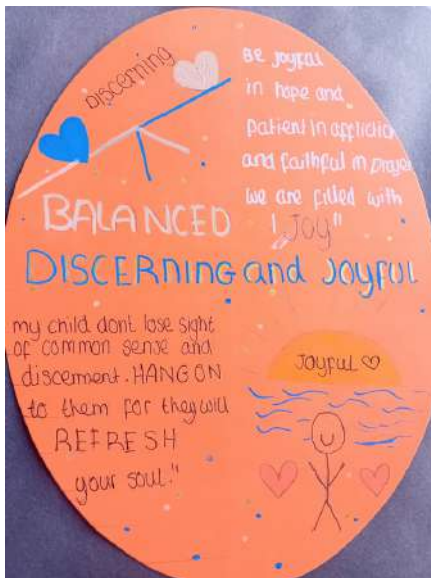 Discerning
BALANCED
Be joyful
in hope and
patient in affliction
and faithful in prayer
we are filled with
Joy"
DISCERNING and Joyful
my child dont lose sight
of common sense and
discerment. HANG ON
to them for they will
REFRESH
your soul."
Joyful